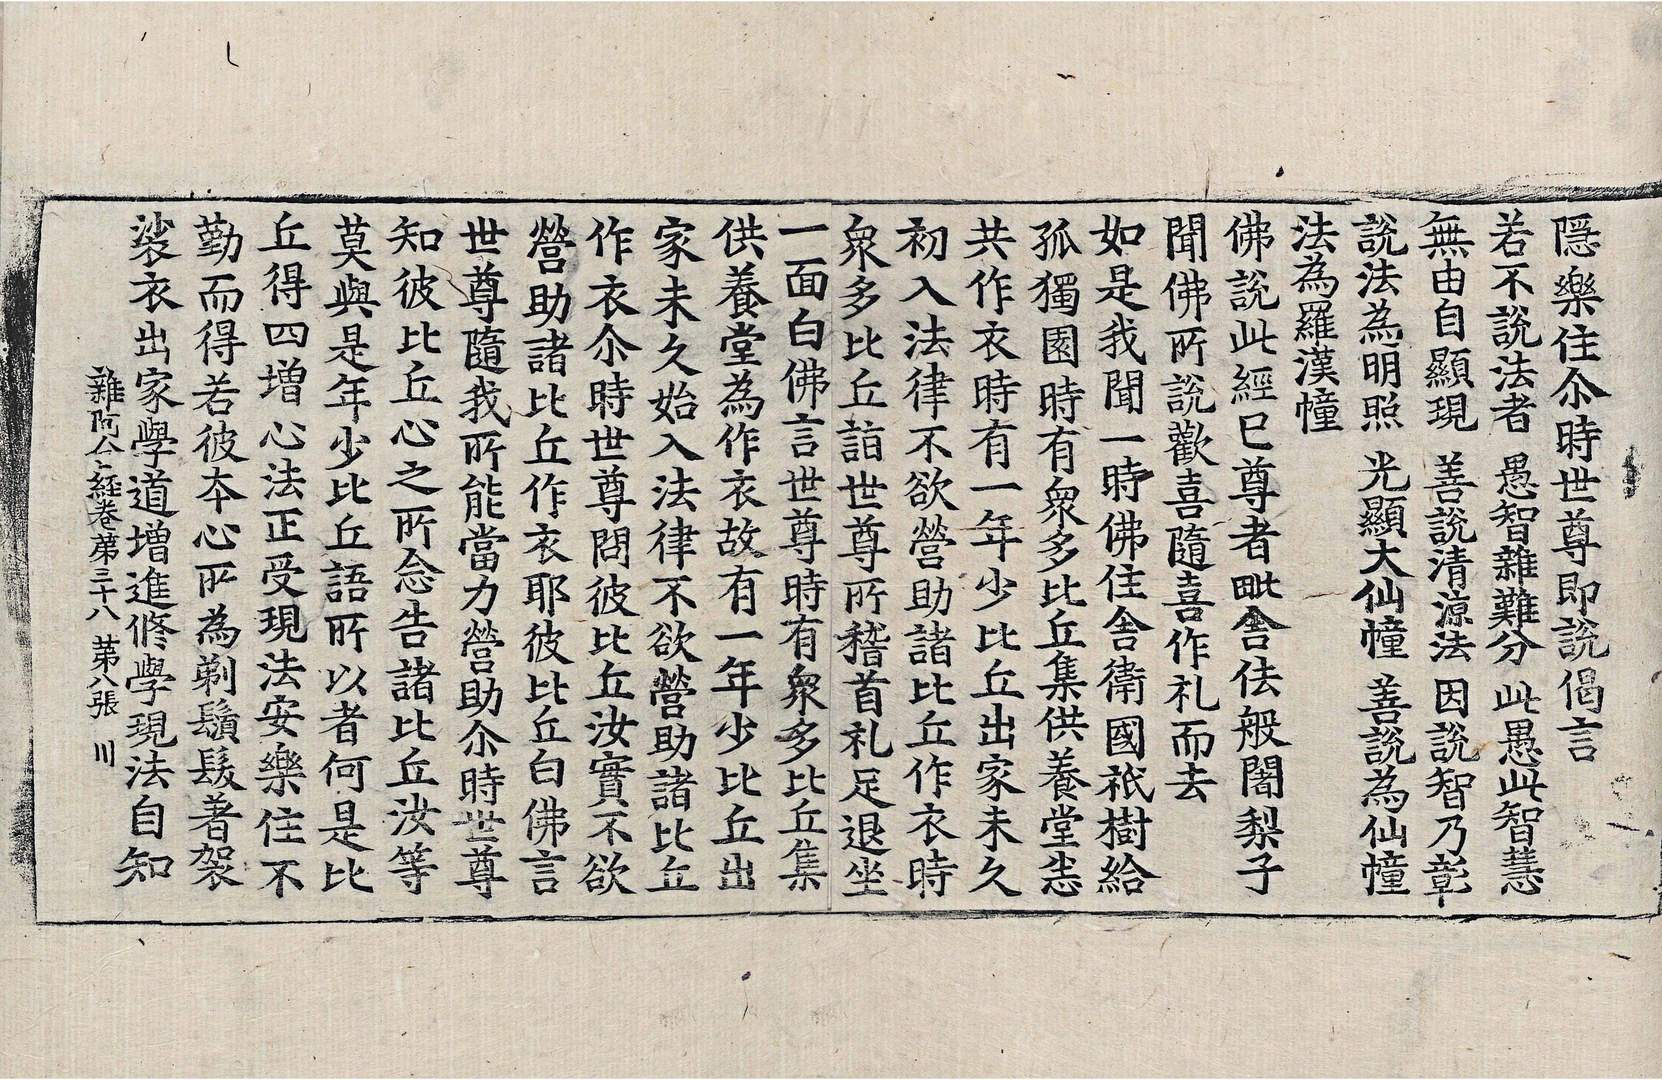 隠樂住尒時世尊即說偈言
若不說法者 愚智雜難分 此愚此智慧
無由自顯現 善說清涼法 因說智乃彰
說法為明照 光顯大仙幢 善說為仙幢
法為羅漢幢
佛說此經已尊者毗舍佉般闍梨子
聞佛所說歡喜隨喜作礼而去
如是我聞一時佛住舍衛國祇樹給
孤獨園時有衆多比丘集供養堂悉
共作衣時有一年少比丘出家未久
初入法律不欲營助諸比丘作衣時
衆多比丘詣世尊所稽首礼足退坐
一面白佛言世尊時有衆多比丘集
供養堂為作衣故有一年少比丘出
家未久始入法律不欲營助諸比丘
作衣尒時世尊問彼比丘汝實不欲
營助諸比丘作衣耶彼比丘白佛言
世尊隨我所能當力營助尒時世尊
知彼比丘心之所念告諸比丘汝等
莫與是年少比丘語所以者何是比
丘得四增心法正受現法安樂住不
勤而得若彼本心所為剃鬚髮著袈
裟衣出家學道增進修學現法自知
雜阿含經卷苐三十八 苐八張 川